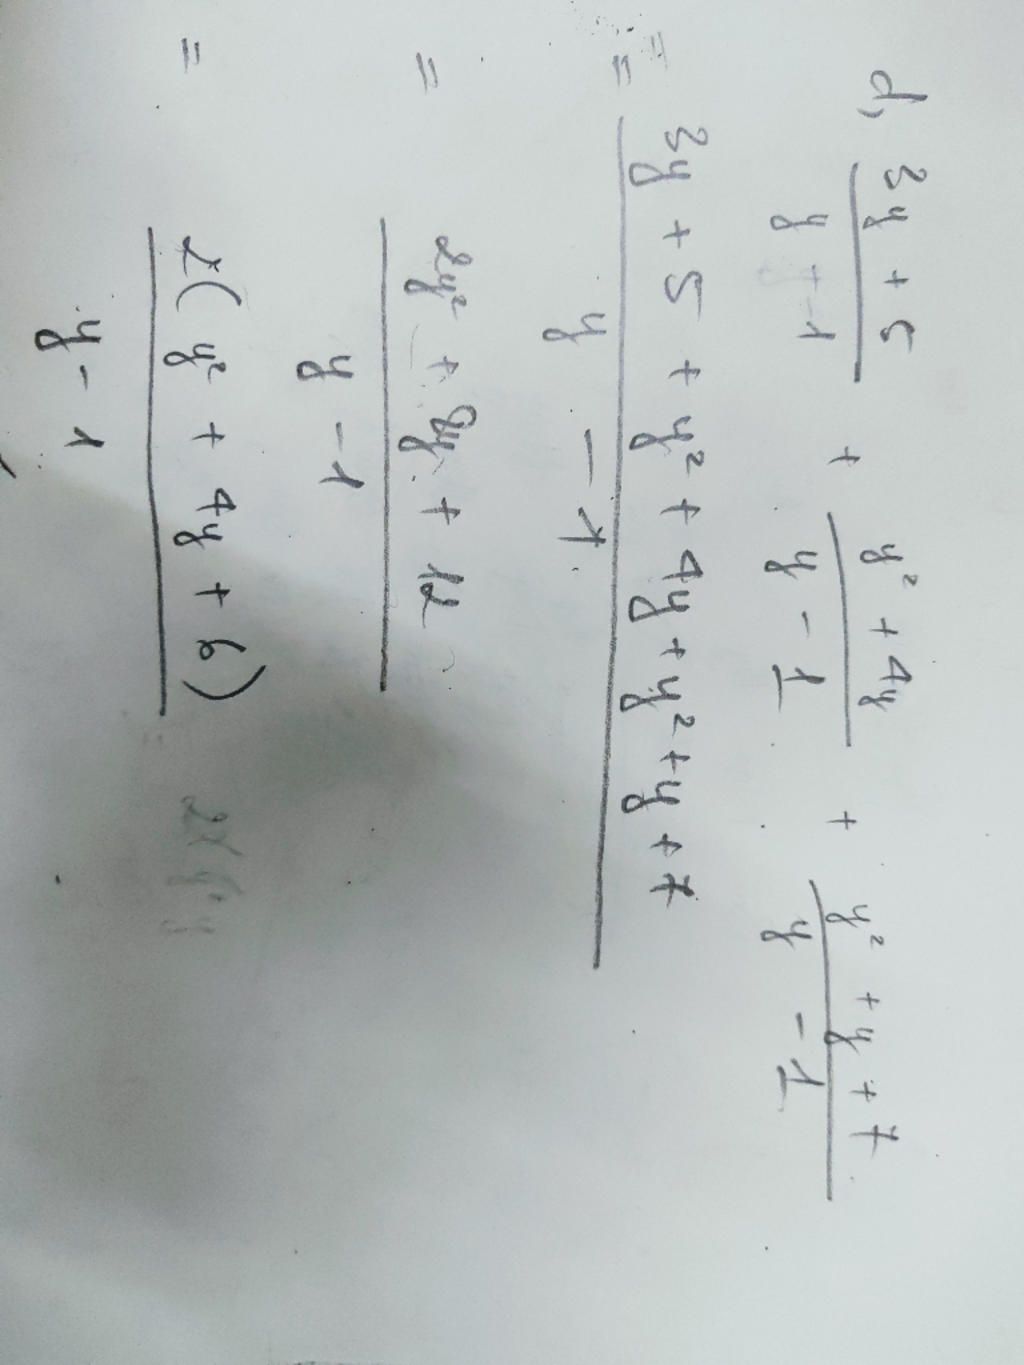 d, (3y + 5)/(y - 1) + (y² + 4y)/(y - 1) + (y² + y + 7)/(y - 1)
= (3y + 5 + y² + 4y + y² + y + 7)/(y - 1)
= (2y² + 8y + 12)/(y - 1)
= 2(y² + 4y + 6)/(y - 1)